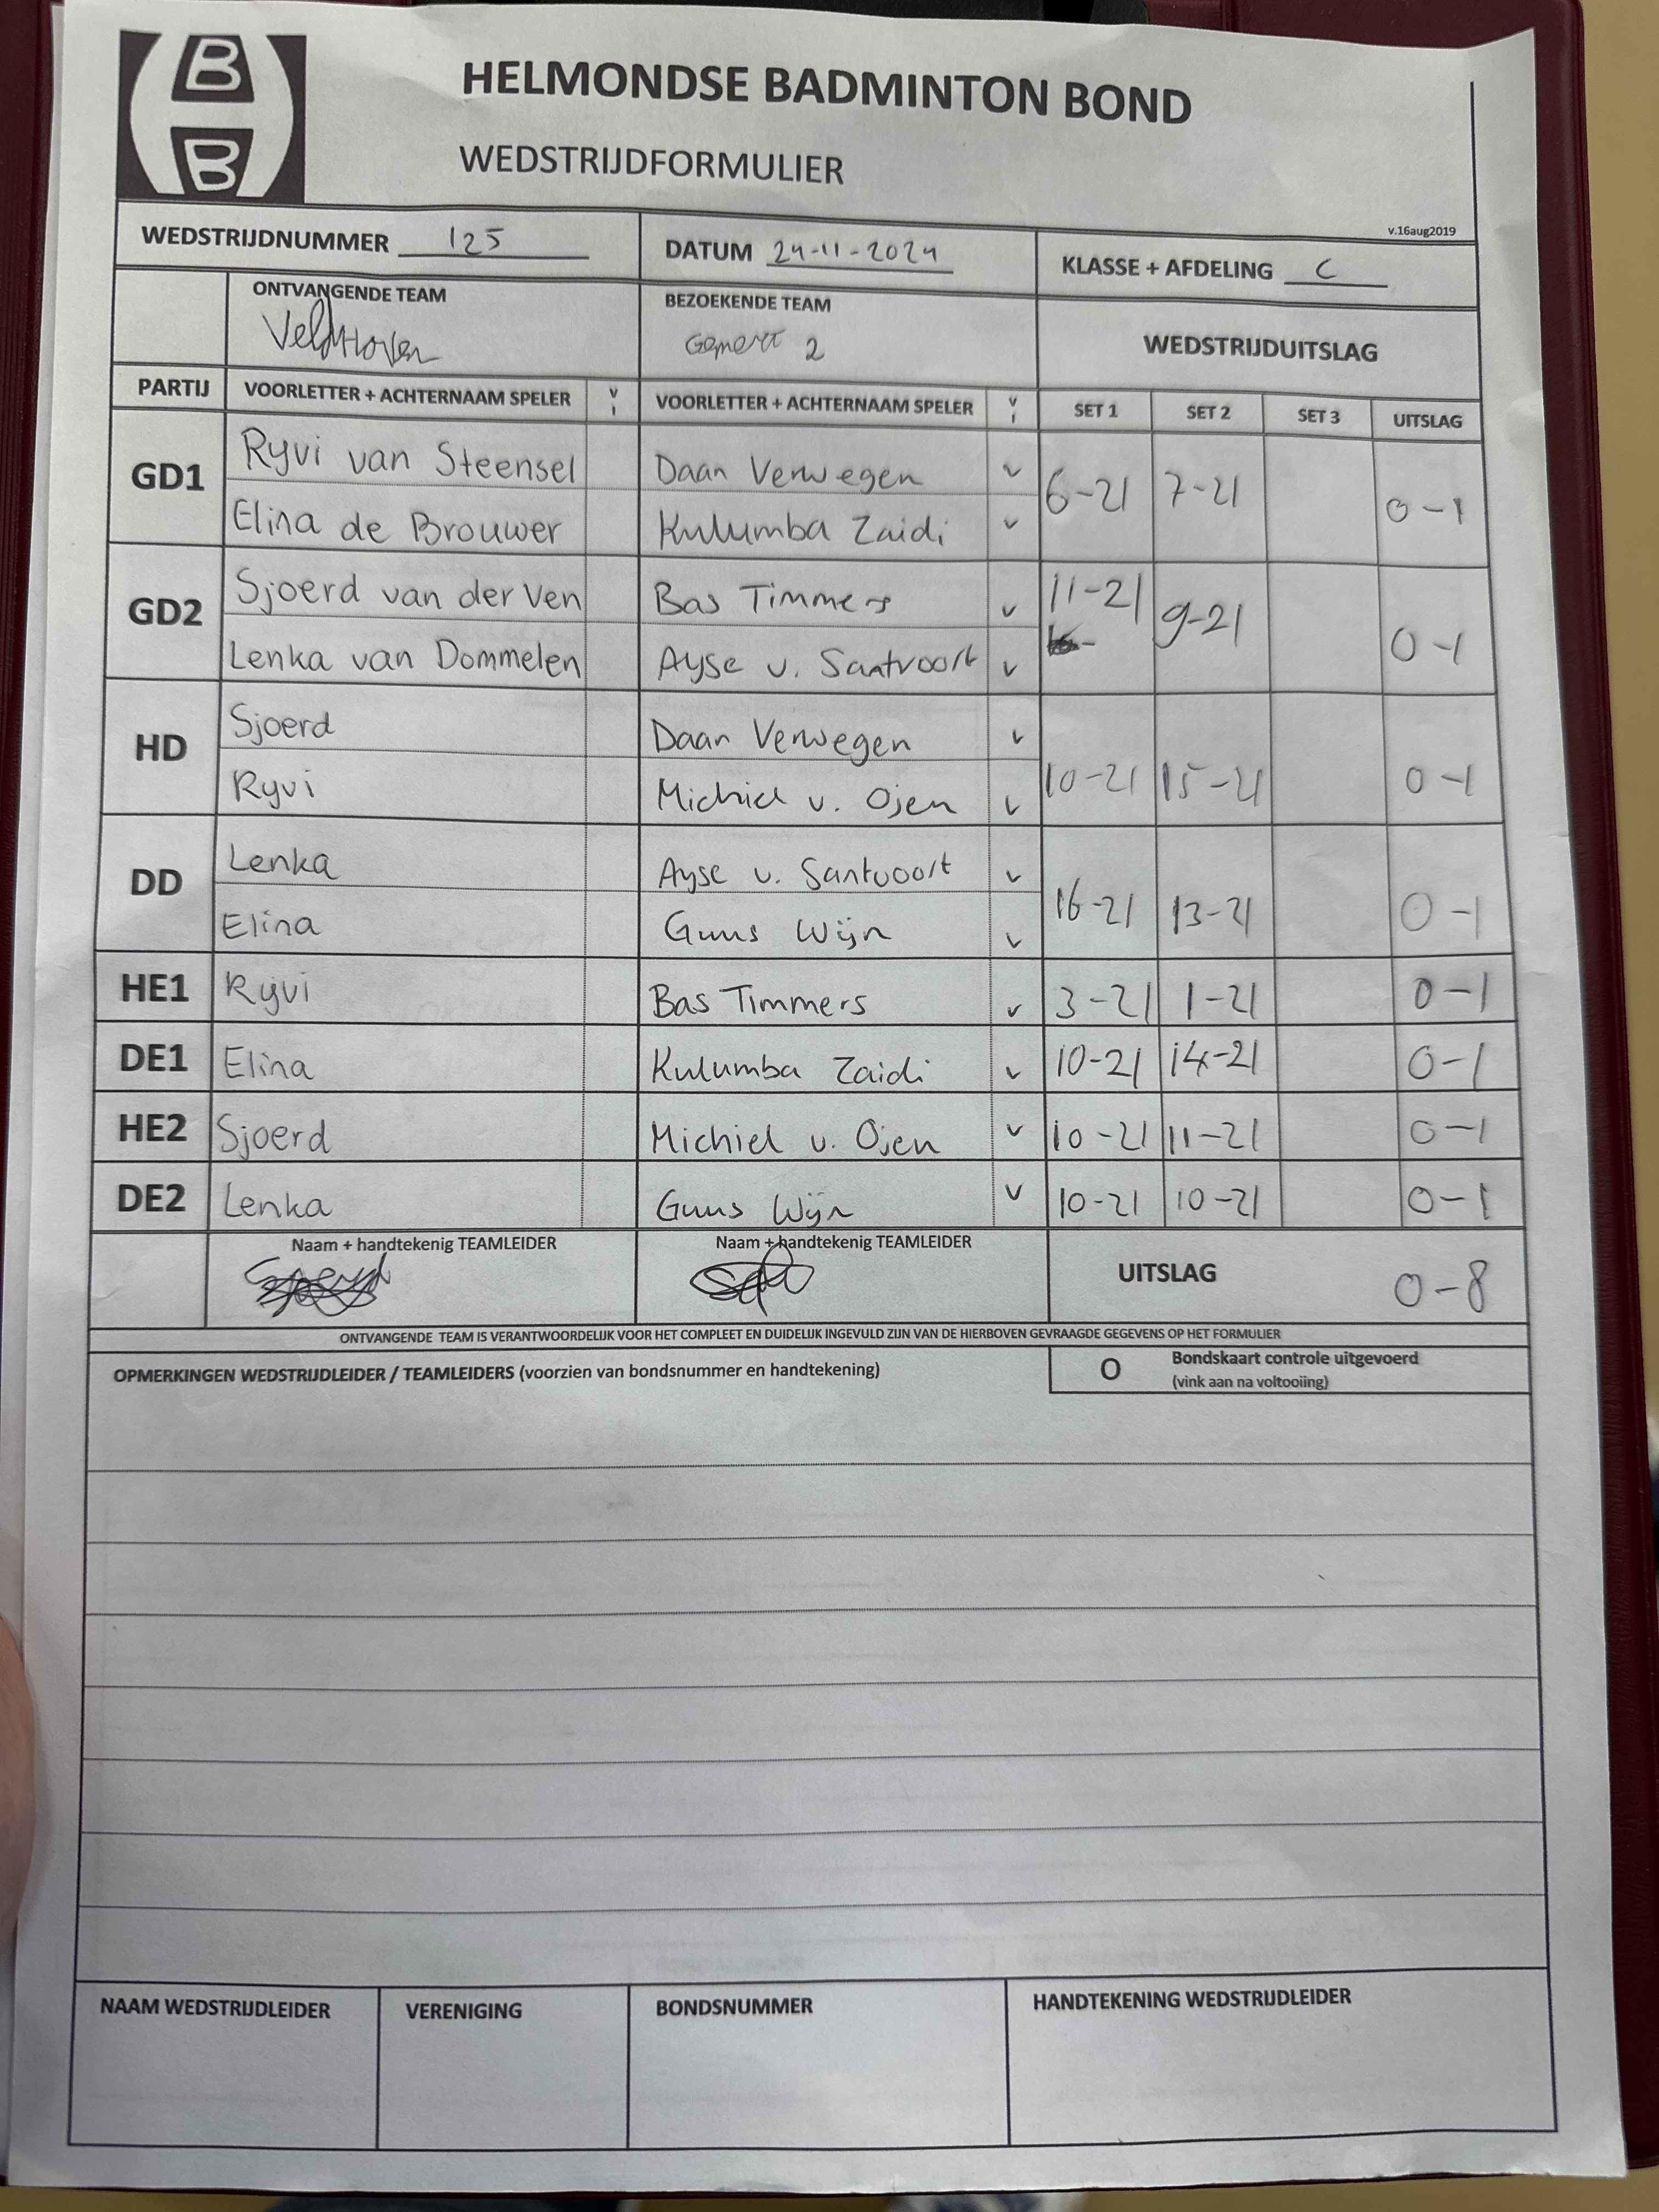 B
B
HELMONDSE BADMINTON BOND
WEDSTRIJDFORMULIER
v.16aug2019
WEDSTRIJDNUMMER 125 DATUM 24-11-2024 KLASSE + AFDELING C
ONTVANGENDE TEAM BEZOEKENDE TEAM WEDSTRIJDUITSLAG
Veldhoven Gemert 2
PARTIJ VOORLETTER + ACHTERNAAM SPELER V I VOORLETTER + ACHTERNAAM SPELER V I SET 1 SET 2 SET 3 UITSLAG
GD1 Ryvi van Steensel Daan Verwegen v 6-21 7-21 0-1
Elina de Brouwer Kulumba Zaidi v
GD2 Sjoerd van der Ven Bas Timmers v 11-21 9-21 0-1
Lenka van Dommelen Ayse v. Santvoort v
HD Sjoerd Daan Verwegen v 10-21 15-21 0-1
Ryvi Michiel v. Ojen v
DD Lenka Ayse v. Santvoort v 16-21 13-21 0-1
Elina Guus Wijn v
HE1 Ryvi Bas Timmers v 3-21 1-21 0-1
DE1 Elina Kulumba Zaidi v 10-21 14-21 0-1
HE2 Sjoerd Michiel v. Ojen v 10-21 11-21 0-1
DE2 Lenka Guus Wijn v 10-21 10-21 0-1
Naam + handtekenig TEAMLEIDER Naam + handtekenig TEAMLEIDER UITSLAG 0-8
ONTVANGENDE TEAM IS VERANTWOORDELIJK VOOR HET COMPLEET EN DUIDELIJK INGEVULD ZIJN VAN DE HIERBOVEN GEVRAAGDE GEGEVENS OP HET FORMULIER
OPMERKINGEN WEDSTRIJDLEIDER / TEAMLEIDERS (voorzien van bondsnummer en handtekening) O Bondskaart controle uitgevoerd
(vink aan na voltooiing)
NAAM WEDSTRIJDLEIDER VERENIGING BONDSNUMMER HANDTEKENING WEDSTRIJDLEIDER